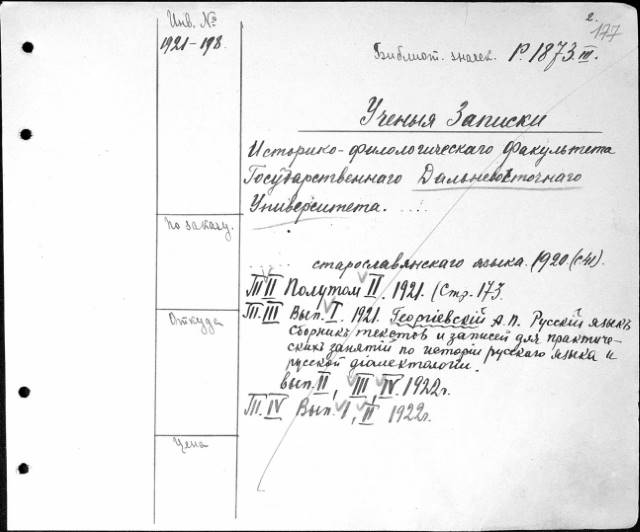 2.
177
Инв. №
1921-198.
Библиот. значек. Р. 1873.III.
Ученыя Записки
Историко-филологическаго факультета
Государственнаго Дальневосточнаго
Университета.
По заказу.
старославянскаго языка. 1920 (с41).
Т.II Полутом II. 1921. (Стр. 173.
Откуда
Т.III Вып. I. 1921. Георгіевскій А. П. Русскій языкъ
Сборникъ текстов и записей для практиче-
скихъ занятій по исторіи русского языка и
русской діалектологіи.
вып. II, III, IV. 1922г.
Т.IV Вып. I, II 1922г.
Цена